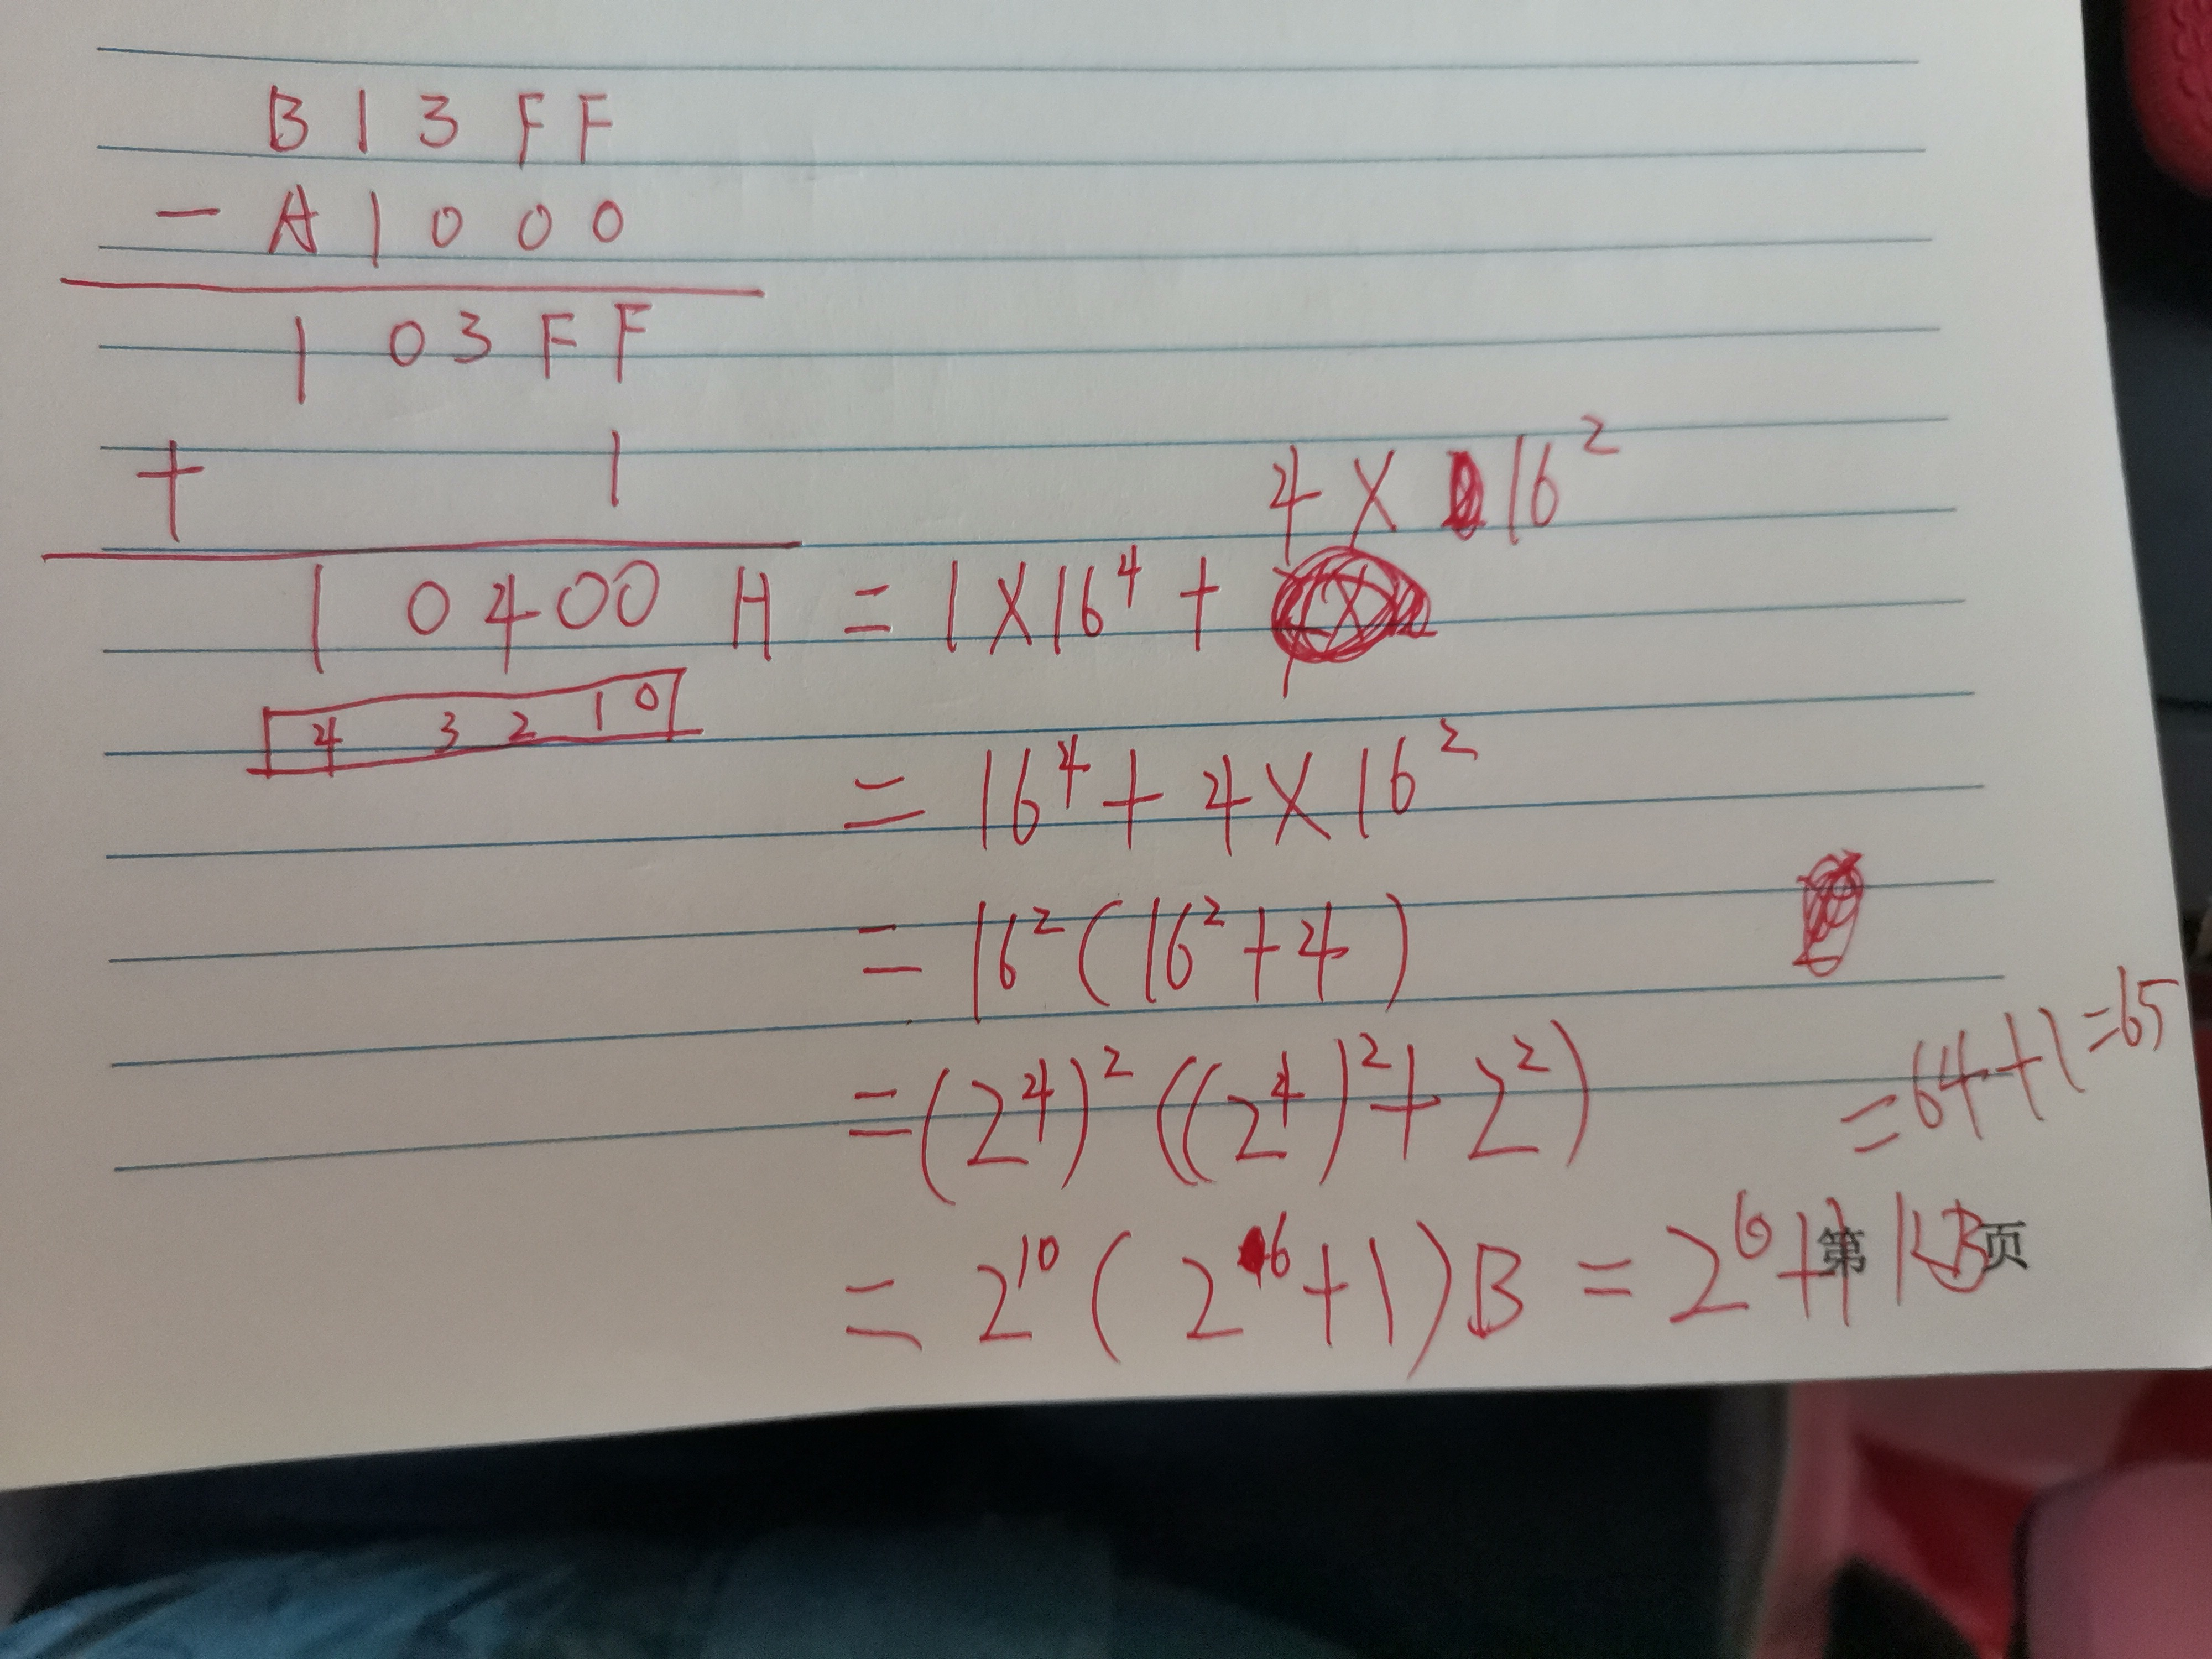 B13FF
- A1000
103FF
+ 1
4 × 16²
10400 H = 1×16⁴ +
4 3 2 1 0
= 16⁴ + 4×16²
= 16² (16² + 4)
= (2⁴)² ((2⁴)² + 2²)
= 64 + 1 = 65
= 2¹⁰ ( 2⁶ + 1 ) B = 2⁶ + 1 KB
第 页